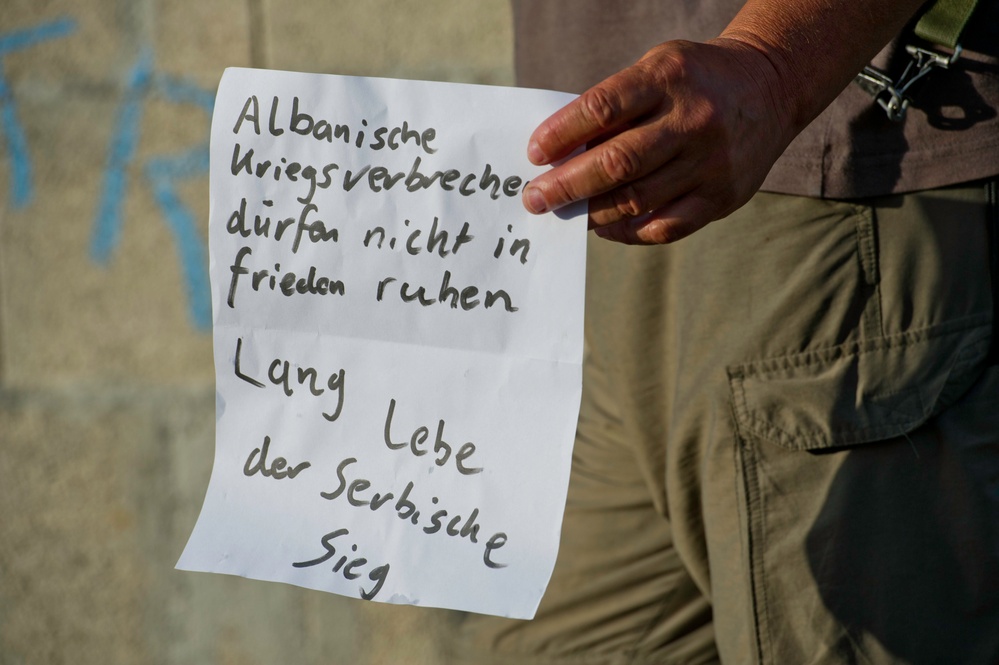 Albanische
Kriegsverbrecher
dürfen nicht in
frieden ruhen
Lang
Lebe
der Serbische
Sieg